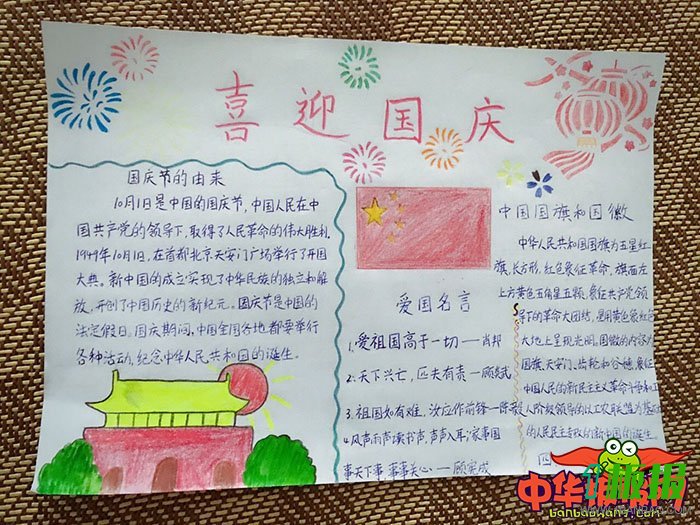 喜迎国庆
国庆节的由来
10月1日是中国的国庆节,中国人民在中
国共产党的领导下,取得了人民革命的伟大胜利.
1949年10月1,在首都北京天安门广场举行了开国
大典。新中国的成立实现了中华民族的独立和解
放,开创了中国历史的新纪元。国庆节是中国的
法定假日。国庆期间,中国全国各地都要举行
各种活动,纪念中华人民共和国的诞生。
爱国名言
1.爱祖国高于一切——肖邦
2.天下兴亡,匹夫有责——顾炎武
3.祖国如有难,汝应作前锋——陈
4.风声雨声读书声,声声入耳;家事国
事天下事 事事关心——顾宪成
中国国旗和国徽
中华人民共和国国旗为五星红
旗,长方形,红色象征革命,旗面左
上方黄色五角星五颗,象征共产党领
导下的革命大团结,星用黄色象红色
大地上呈现光明。国徽的内容为
国旗、天安门、齿轮和谷穗,象征
中国人民的新民主主义革命斗争和工
人阶级领导的以工农联盟为基础
的人民民主专政的新中国的诞生。
中华